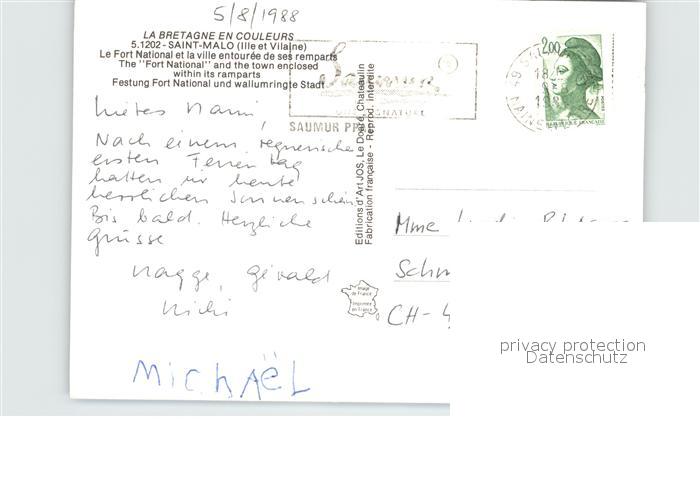 5/8/1988
LA BRETAGNE EN COULEURS
5.1202 - SAINT-MALO (Ille et Vilaine)
Le Fort National et la ville entourée de ses remparts
The "Fort National" and the town enclosed
within its ramparts
Festung Fort National und wallumringte Stadt
SIGNATURE
SAUMUR PR
2,00
REPUBLIQUE FRANCAISE
49
18
19
MAINE
Nach einem regnerischen
ersten Ferientag
hatten wir heute
herrlichen Sonnenschein
Bis bald. Herzliche
Grüsse
Gérald
MicHAËL
Editions d'Art JOS, Le Doaré, Chateaulin
Fabrication française - Reprod. interdite
Image
de France
Imprimée
en France
Mme
Schm
CH-
privacy protection
Datenschutz